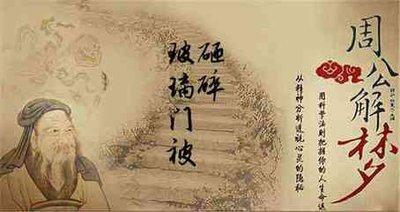 玻璃门被
砸碎
周公解梦
用科学法则把握你的人生命运
从精神分析透视心灵的隐秘